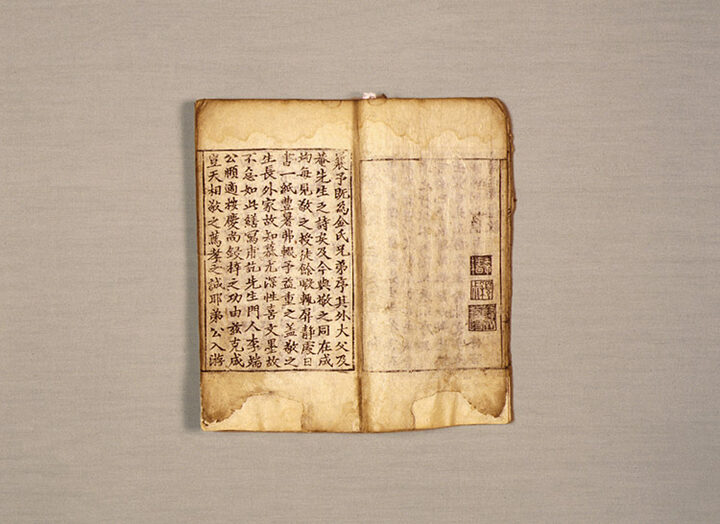 曩予旣爲金氏兄弟序其外大父及
菴先生之詩矣及今與敬之同在成
均每見敬之授徒餘暇輒屛靜處日
書一紙豊暑弗輟予益重之盖敬之
生長外家故知慕尤深性喜文墨故
不怠如此繕寫甫訖先生門人李端
公順適按慶尚鋟梓之功由玆克成
豈天相敬之篤孝之誠耶弟公入游